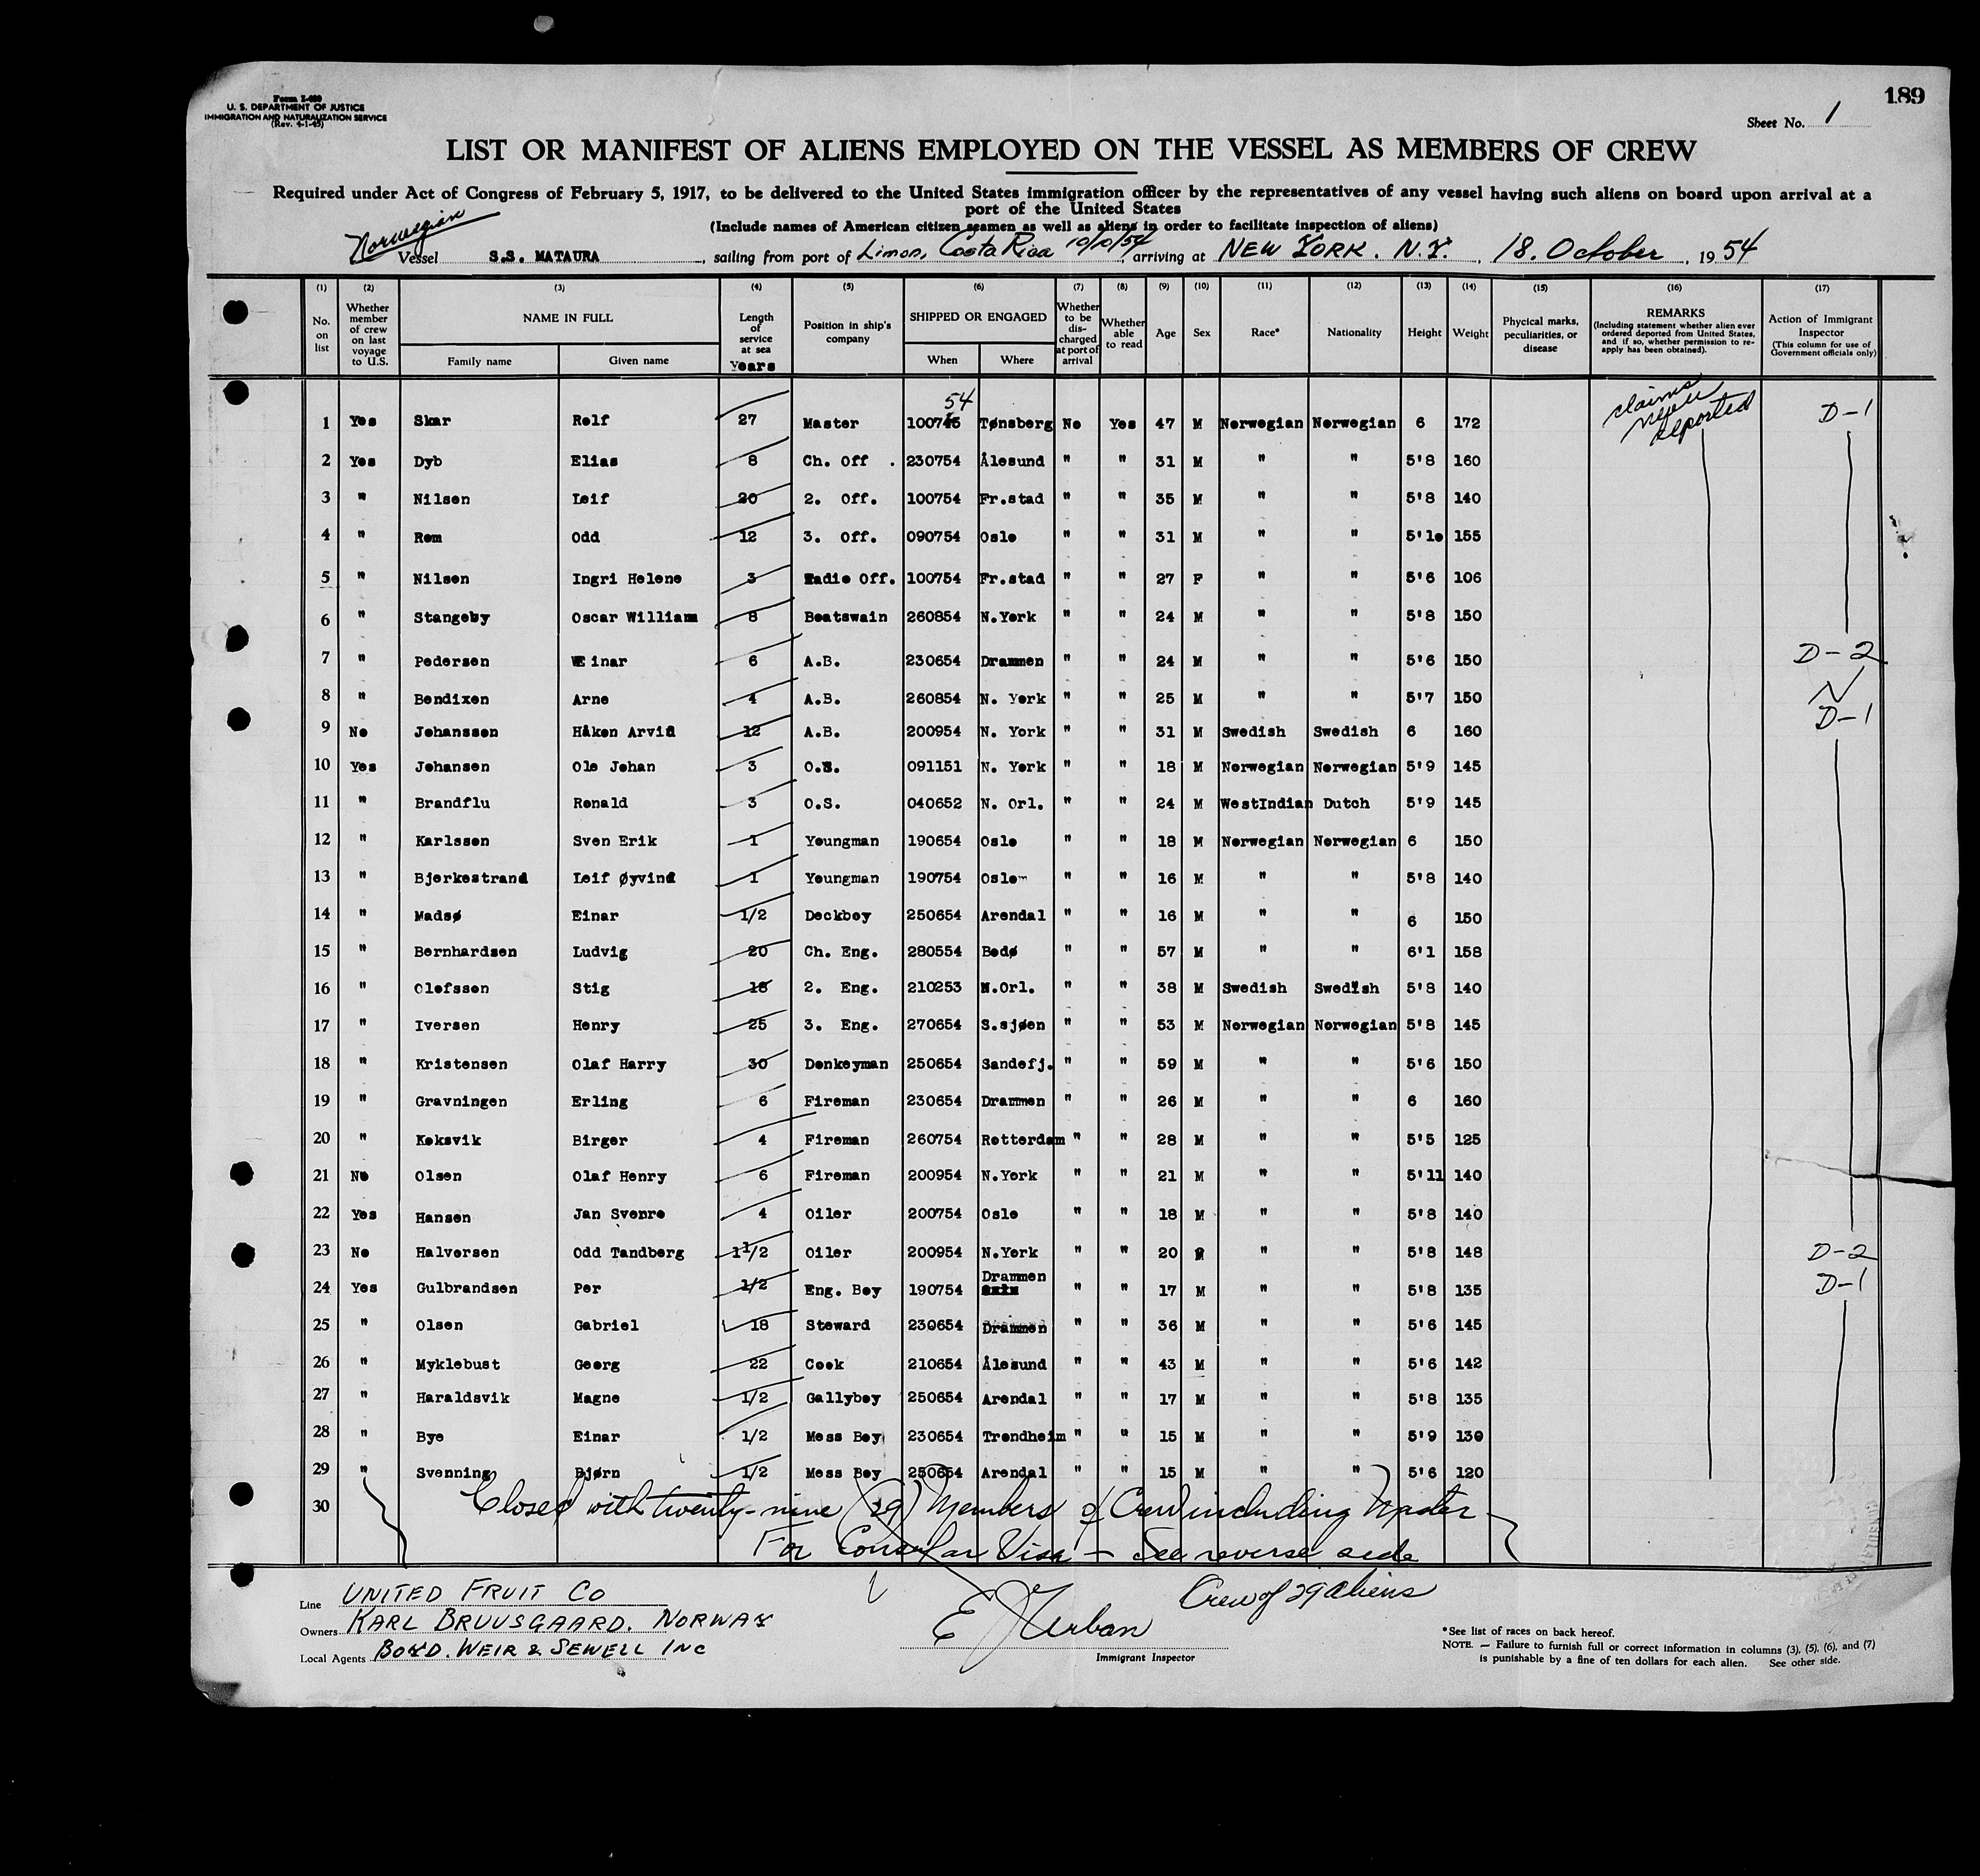 189
Form I-480
U. S. DEPARTMENT OF JUSTICE
IMMIGRATION AND NATURALIZATION SERVICE
(Rev. 4-1-45)
Sheet No. 1
LIST OR MANIFEST OF ALIENS EMPLOYED ON THE VESSEL AS MEMBERS OF CREW
Required under Act of Congress of February 5, 1917, to be delivered to the United States immigration officer by the representatives of any vessel having such aliens on board upon arrival at a
port of the United States
(Include names of American citizen seamen as well as aliens in order to facilitate inspection of aliens)
Norwegian
Vessel S.S. MATAURA, sailing from port of Limon, Costa Rica 10/10/54, arriving at NEW YORK. N.Y., 18. October, 1954
(1) No. on list
(2) Whether member of crew on last voyage to U.S.
(3) NAME IN FULL Family name Given name
(4) Length of service at sea Years
(5) Position in ship's company
(6) SHIPPED OR ENGAGED When Where
(7) Whether to be discharged at port of arrival
(8) Whether able to read
(9) Age
(10) Sex
(11) Race*
(12) Nationality
(13) Height
(14) Weight
(15) Physical marks, peculiarities, or disease
(16) REMARKS (Including statement whether alien ever ordered deported from United States, and if so, whether permission to reapply has been obtained).
(17) Action of Immigrant Inspector (This column for use of Government officials only)
54
claims never deported
1 Yes Skar Rolf 27 Master 100745 Tønsberg No Yes 47 M Norwegian Norwegian 6 172 D-1
2 Yes Dyb Elias 8 Ch. Off . 230754 Ålesund " " 31 M " " 5'8 160
3 " Nilsen Leif 20 2. Off. 100754 Fr.stad " " 35 M " " 5'8 140
4 " Rem Odd 12 3. Off. 090754 Oslo " " 31 M " " 5'10 155
5 " Nilsen Ingri Helene 3 Radio Off. 100754 Fr.stad " " 27 F " " 5'6 106
6 " Stangeby Oscar William 8 Boatswain 260854 N.York " " 24 M " " 5'8 150
7 " Pedersen Einar 6 A.B. 230654 Drammen " " 24 M " " 5'6 150 D-2
8 " Bendixen Arne 4 A.B. 260854 N. York " " 25 M " " 5'7 150
9 No Johansson Håkon Arvid 12 A.B. 200954 N. York " " 31 M Swedish Swedish 6 160 D-1
10 Yes Johansen Ole Johan 3 O.S. 091151 N. York " " 18 M Norwegian Norwegian 5'9 145
11 " Brandflu Ronald 3 O.S. 040652 N. Orl. " " 24 M WestIndian Dutch 5'9 145
12 " Karlsson Sven Erik 1 Youngman 190654 Oslo " " 18 M Norwegian Norwegian 6 150
13 " Bjerkestrand Leif Øyvind 1 Youngman 190754 Oslo " " 16 M " " 5'8 140
14 " Madsø Einar 1/2 Deckboy 250654 Arendal " " 16 M " " 6 150
15 " Bernhardsen Ludvig 20 Ch. Eng. 280554 Bodø " " 57 M " " 6'1 158
16 " Olofsson Stig 18 2. Eng. 210253 N.Orl. " " 38 M Swedish Swedish 5'8 140
17 " Iversen Henry 25 3. Eng. 270654 S.sjøen " " 53 M Norwegian Norwegian 5'8 145
18 " Kristensen Olaf Harry 30 Donkeyman 250654 Sandefj. " " 59 M " " 5'6 150
19 " Gravningen Erling 6 Fireman 230654 Drammen " " 26 M " " 6 160
20 " Koksvik Birger 4 Fireman 260754 Rotterdam " " 28 M " " 5'5 125
21 No Olsen Olaf Henry 6 Fireman 200954 N.York " " 21 M " " 5'11 140
22 Yes Hansen Jan Svenre 4 Oiler 200754 Oslo " " 18 M " " 5'8 140
23 No Halvorsen Odd Tandberg 1 1/2 Oiler 200954 N.York " " 20 M " " 5'8 148 D-2
24 Yes Gulbrandsen Per 1/2 Eng. Boy 190754 Drammen " " 17 M " " 5'8 135 D-1
25 " Olsen Gabriel 18 Steward 230654 Drammen " " 36 M " " 5'6 145
26 " Myklebust Georg 22 Cook 210654 Ålesund " " 43 M " " 5'6 142
27 " Haraldsvik Magne 1/2 Gallyboy 250654 Arendal " " 17 M " " 5'8 135
28 " Bye Einar 1/2 Mess Boy 230654 Trondheim " " 15 M " " 5'9 130
29 " Svenning Bjørn 1/2 Mess Boy 250654 Arendal " " 15 M " " 5'6 120
30 Closed with twenty-nine (29) Members of Crew including Master
For Consular Visa - See reverse side
Line UNITED FRUIT CO
Owners KARL BRUUSGAARD. NORWAY
Local Agents BOYD. WEIR & SEWELL INC
E J Urban
Immigrant Inspector
Crew of 29 aliens
*See list of races on back hereof.
NOTE. — Failure to furnish full or correct information in columns (3), (5), (6), and (7)
is punishable by a fine of ten dollars for each alien. See other side.